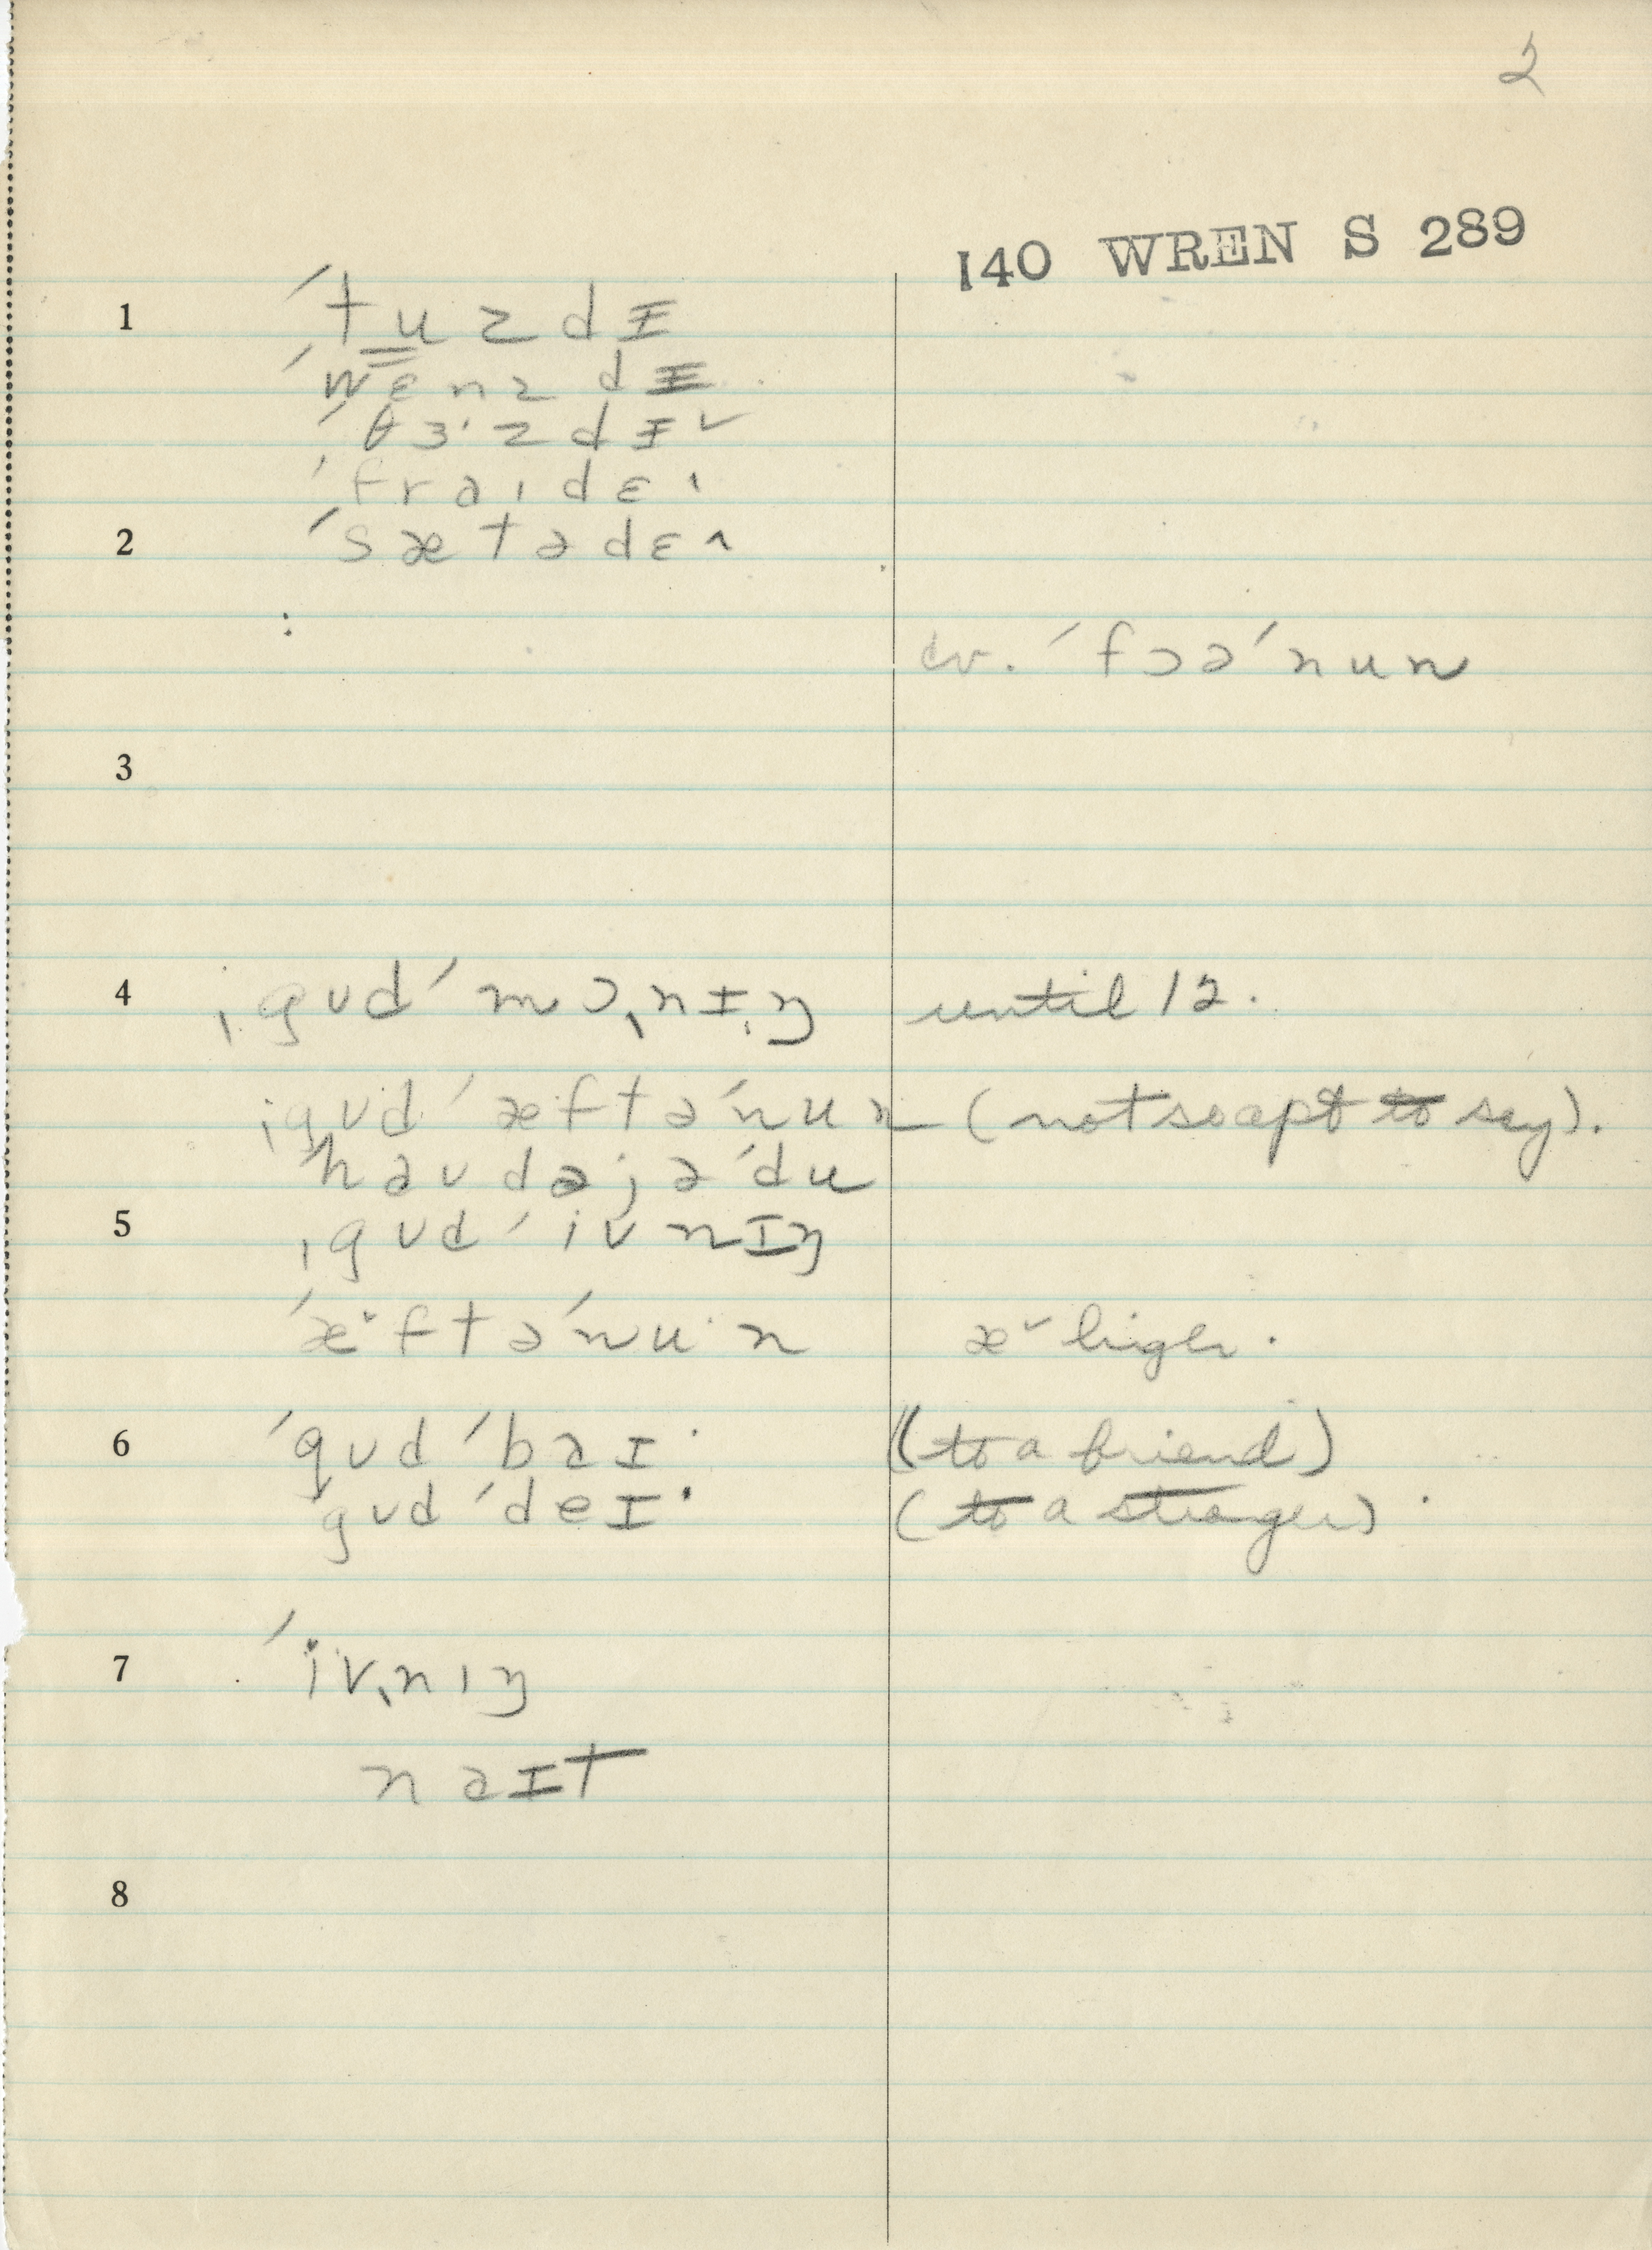 2
140 WREN S 289
1 ˈtu̳zdɪ
ˈwɛnzdɪ
ˈθɜˑzdɪ˅
ˈfraˌdɛ˄
2 ˈsætədɛ˄
cv. ˈfɔəˈnun
3
4 ˌgʊdˈmɔˌnɪŋ until 12.
ˌgʊdˈæftəˈnun (not so apt to say).
ˈhaʊdəjəˈdu
5 ˌgʊdˈivnɪŋ
ˈæ˅ftəˈnuˑn æ˅ higher.
6 ˈgʊdˈbaɪˑ (to a friend)
gʊdˈdeɪˑ (to a stranger).
7 ˈivˌnɪŋ
naɪt
8